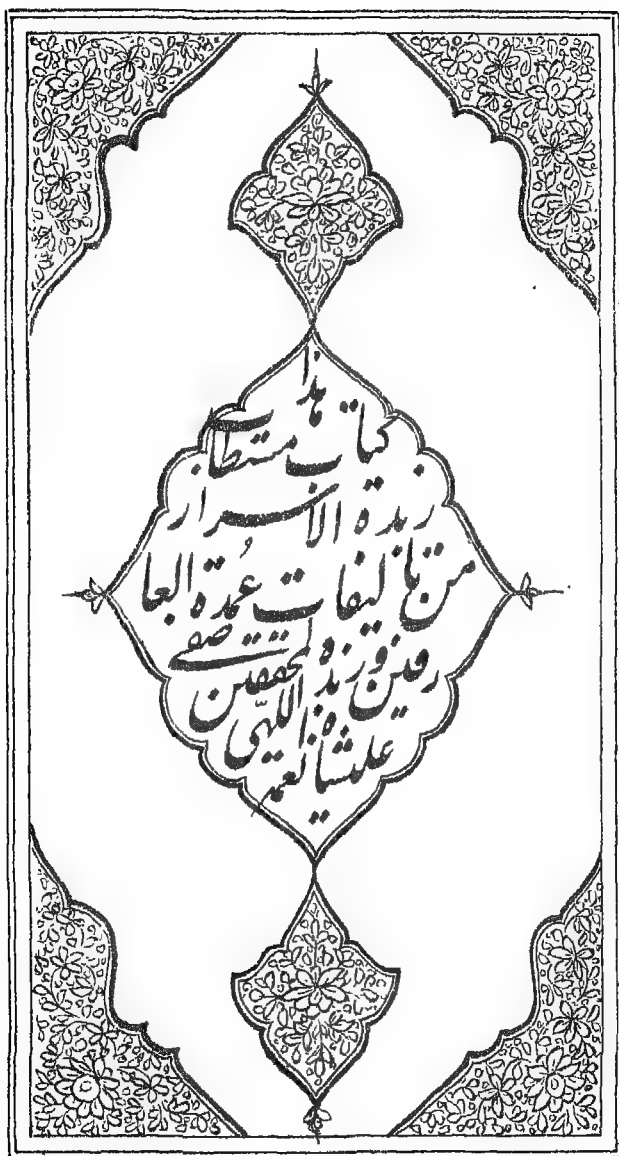 هذا
کتاب مستطاب
زبدة الاسرار
من تالیفات عُمدة العا
رفین و زبدة المحققین صفی
علیشاه نعمة اللهی